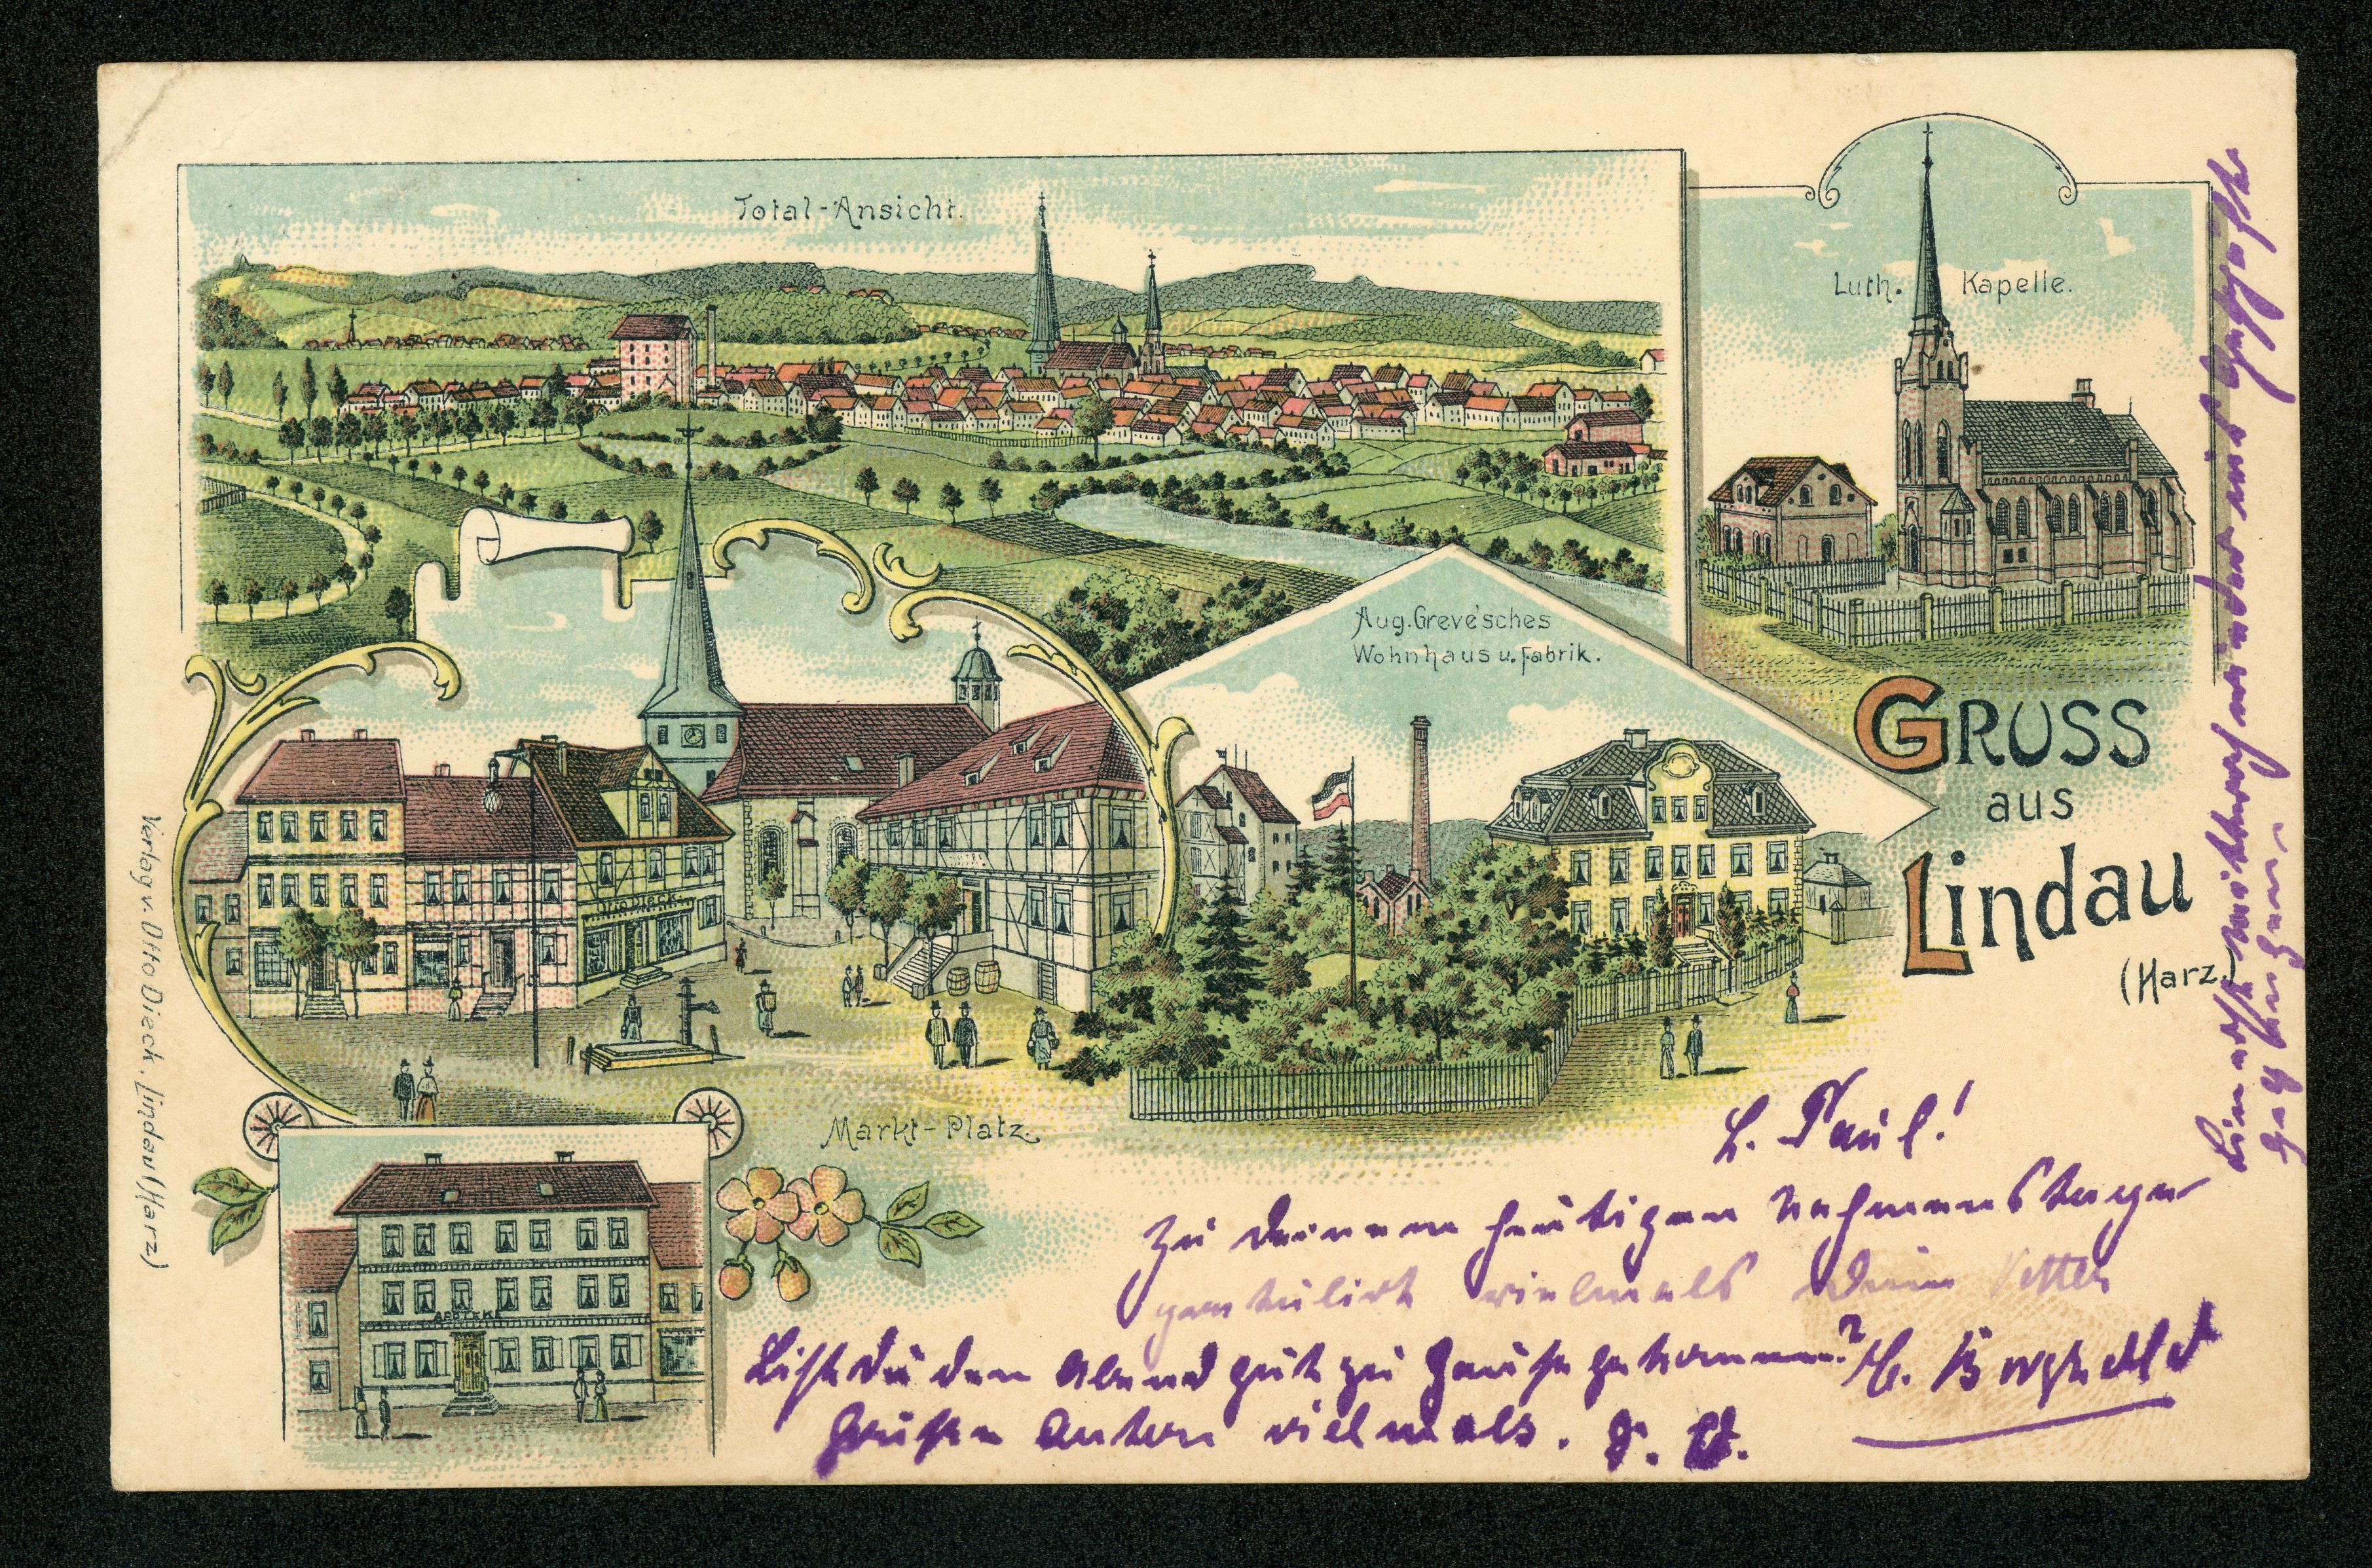 Total-Ansicht.
Luth. Kapelle.
Aug. Greve'sches
Wohnhaus u. Fabrik.
GRUSS
aus
Lindau
(Harz.)
Otto Dieck
Markt-Platz.
APOTEKE
Verlag v. Otto Dieck. Lindau (Harz.)
L. Paul!
Zu deinem heutigen Nahmenstage
gratulirt vielmals dein Vetter
Bist du den Abend gut zu Hause gekommen?
Grüße vielmals. D. O.